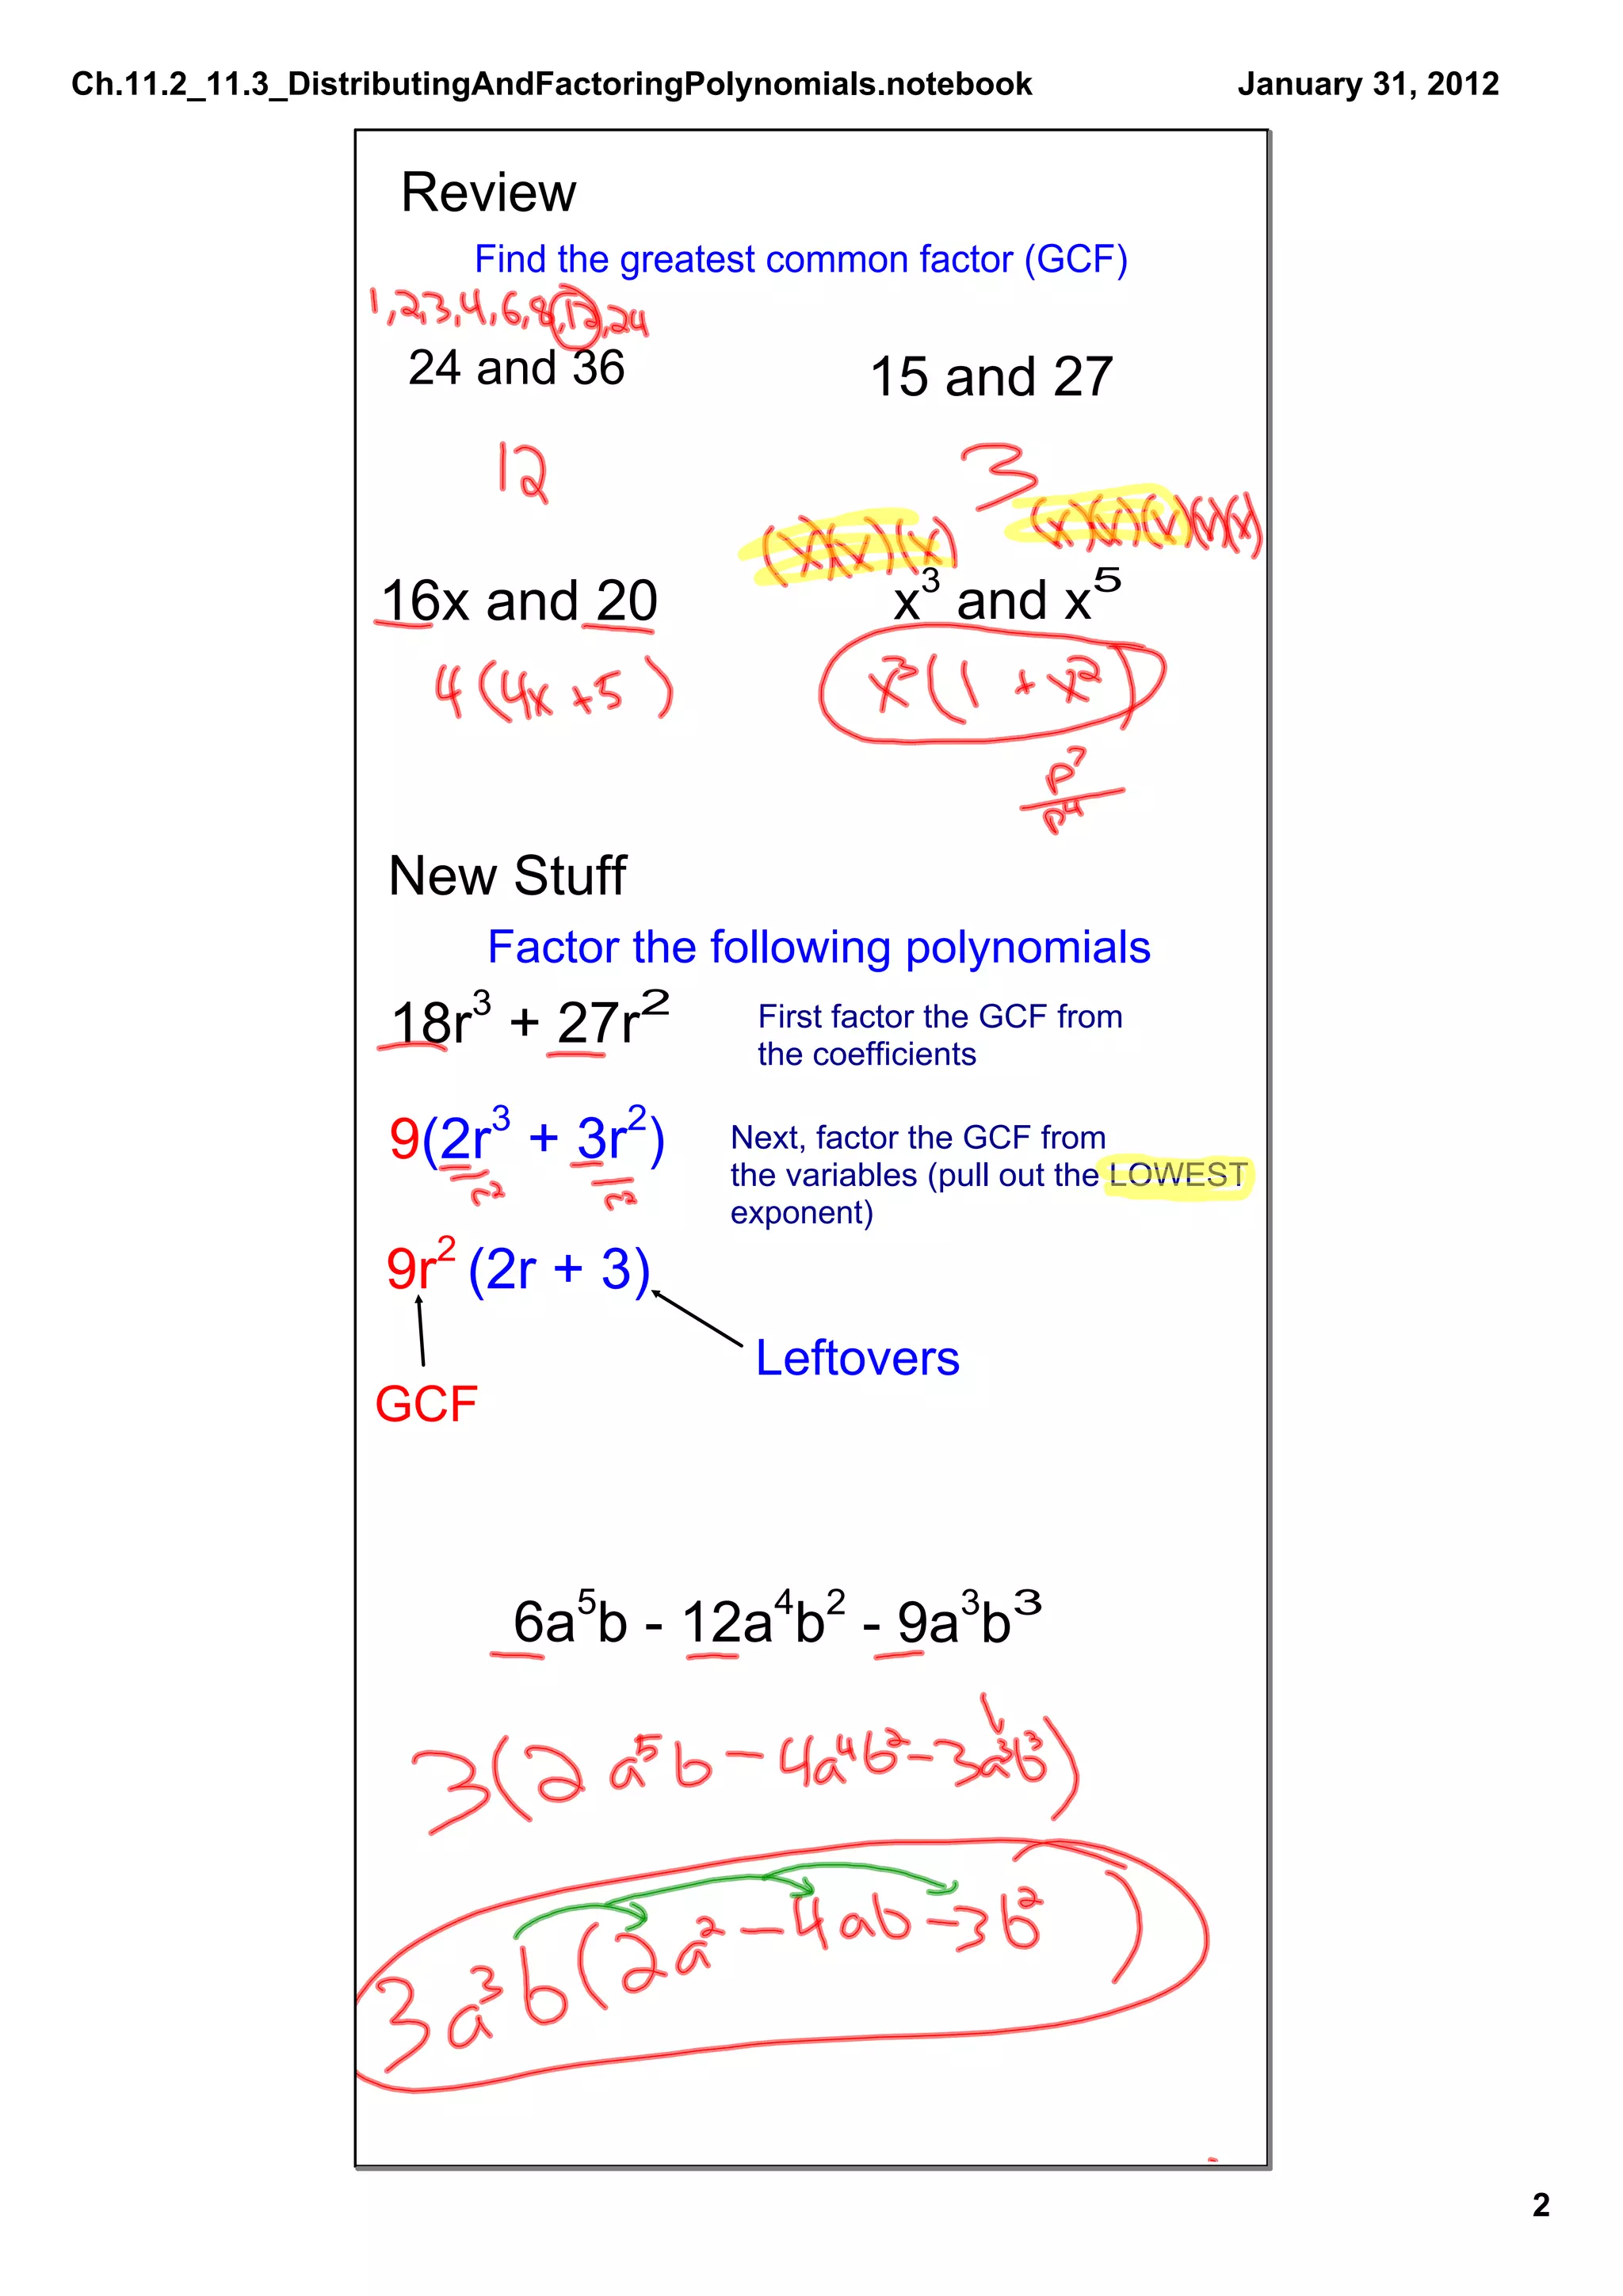 Ch.11.2_11.3_DistributingAndFactoringPolynomials.notebook
January 31, 2012
Review
Find the greatest common factor (GCF)
1,2,3,4,6,8,12,24
24 and 36
15 and 27
12
3
(x)(x)(x)
(x)(x)(x)(x)(x)
16x and 20
x³ and x⁵
4(4x+5)
x³(1 + x²)
p⁷
p⁴
New Stuff
Factor the following polynomials
18r³ + 27r²
First factor the GCF from
the coefficients
9(2r³ + 3r²)
r² r²
Next, factor the GCF from
the variables (pull out the LOWEST
exponent)
9r² (2r + 3)
Leftovers
GCF
6a⁵b - 12a⁴b² - 9a³b³
3(2a⁵b - 4a⁴b² - 3a³b³)
3a³b(2a² - 4ab - 3b²)
2